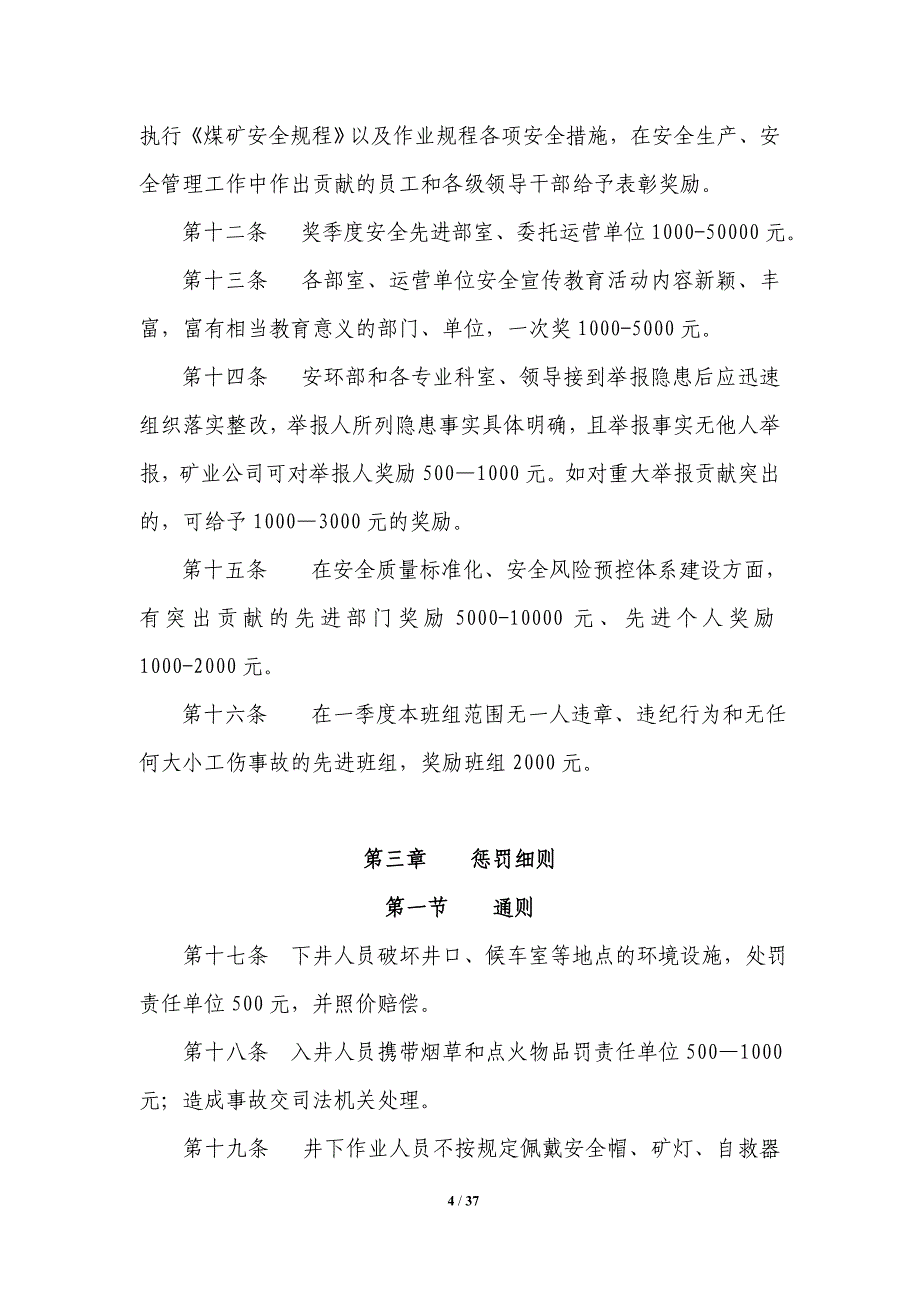 执行《煤矿安全规程》以及作业规程各项安全措施，在安全生产、安
全管理工作中作出贡献的员工和各级领导干部给予表彰奖励。
第十二条　奖季度安全先进部室、委托运营单位1000-50000元。
第十三条　各部室、运营单位安全宣传教育活动内容新颖、丰
富，富有相当教育意义的部门、单位，一次奖1000-5000元。
第十四条　安环部和各专业科室、领导接到举报隐患后应迅速
组织落实整改，举报人所列隐患事实具体明确，且举报事实无他人举
报，矿业公司可对举报人奖励500—1000元。如对重大举报贡献突出
的，可给予1000—3000元的奖励。
第十五条　在安全质量标准化、安全风险预控体系建设方面，
有突出贡献的先进部门奖励5000-10000元、先进个人奖励
1000-2000元。
第十六条　在一季度本班组范围无一人违章、违纪行为和无任
何大小工伤事故的先进班组，奖励班组2000元。
第三章　惩罚细则
第一节　通则
第十七条　下井人员破坏井口、候车室等地点的环境设施，处罚
责任单位500元，并照价赔偿。
第十八条　入井人员携带烟草和点火物品罚责任单位500—1000
元；造成事故交司法机关处理。
第十九条　井下作业人员不按规定佩戴安全帽、矿灯、自救器
4 / 37